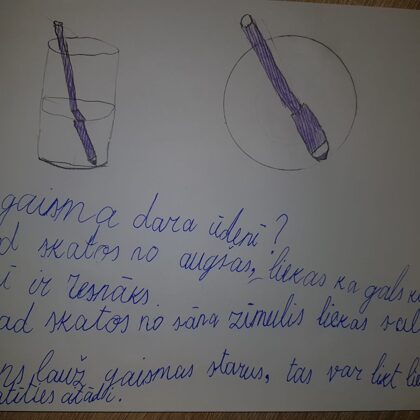 gaisma dara ūdenī?
d skatos no augšas, liekas ka gals k
ī ir resnāks.
ad skatos no sāna zīmulis liekas sal
ns lauž gaismas starus, tas var likt li
atīties atādi.